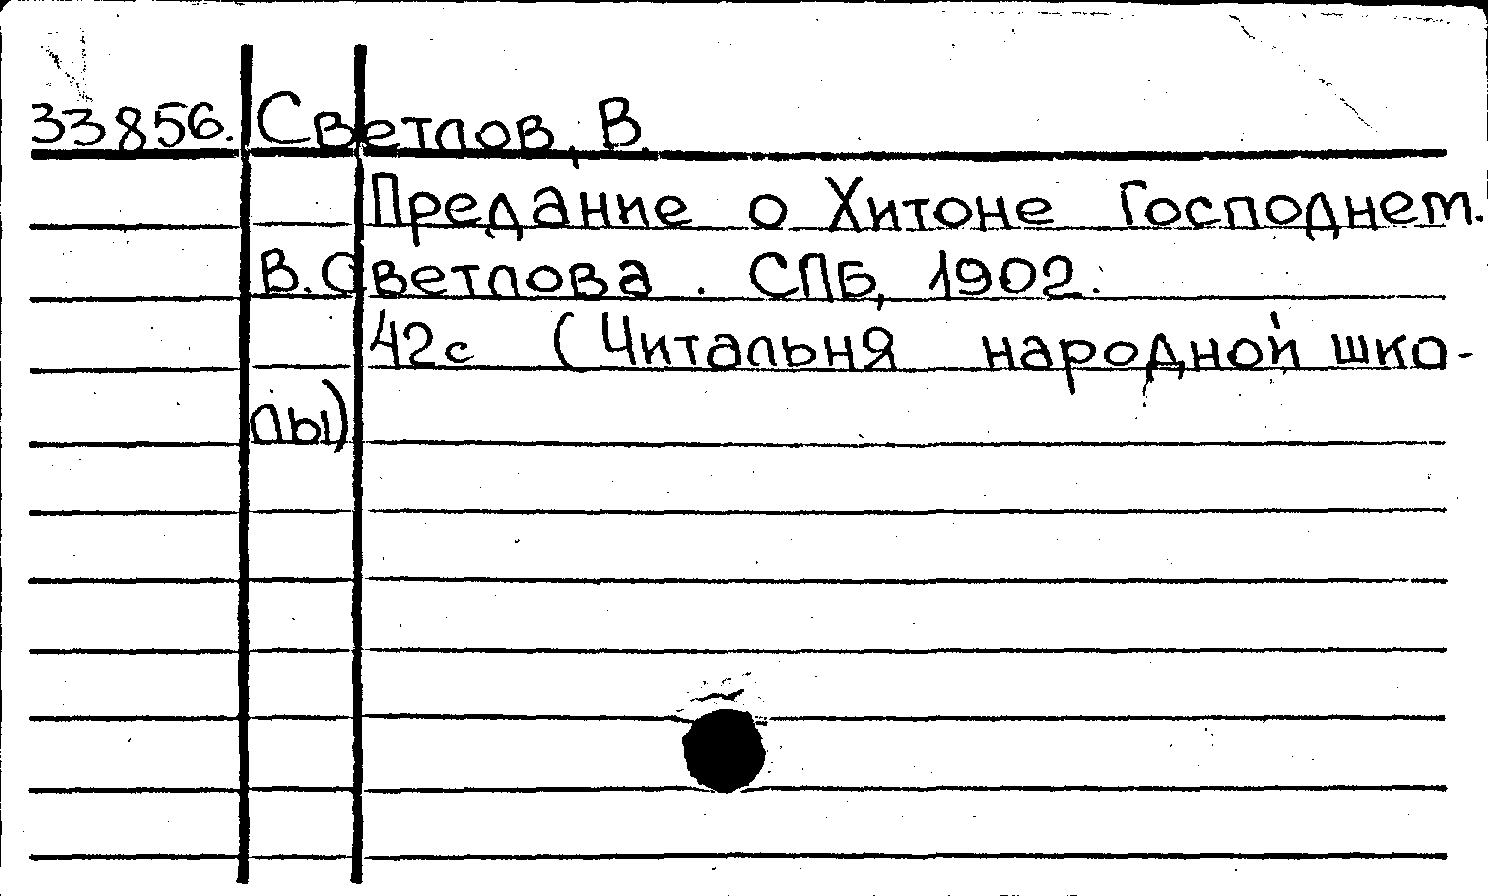 33856. Светлов, В.
Предание о Хитоне Господнем.
В. Светлова. СПБ, 1902.
42с (Читальня народной шко-
лы)